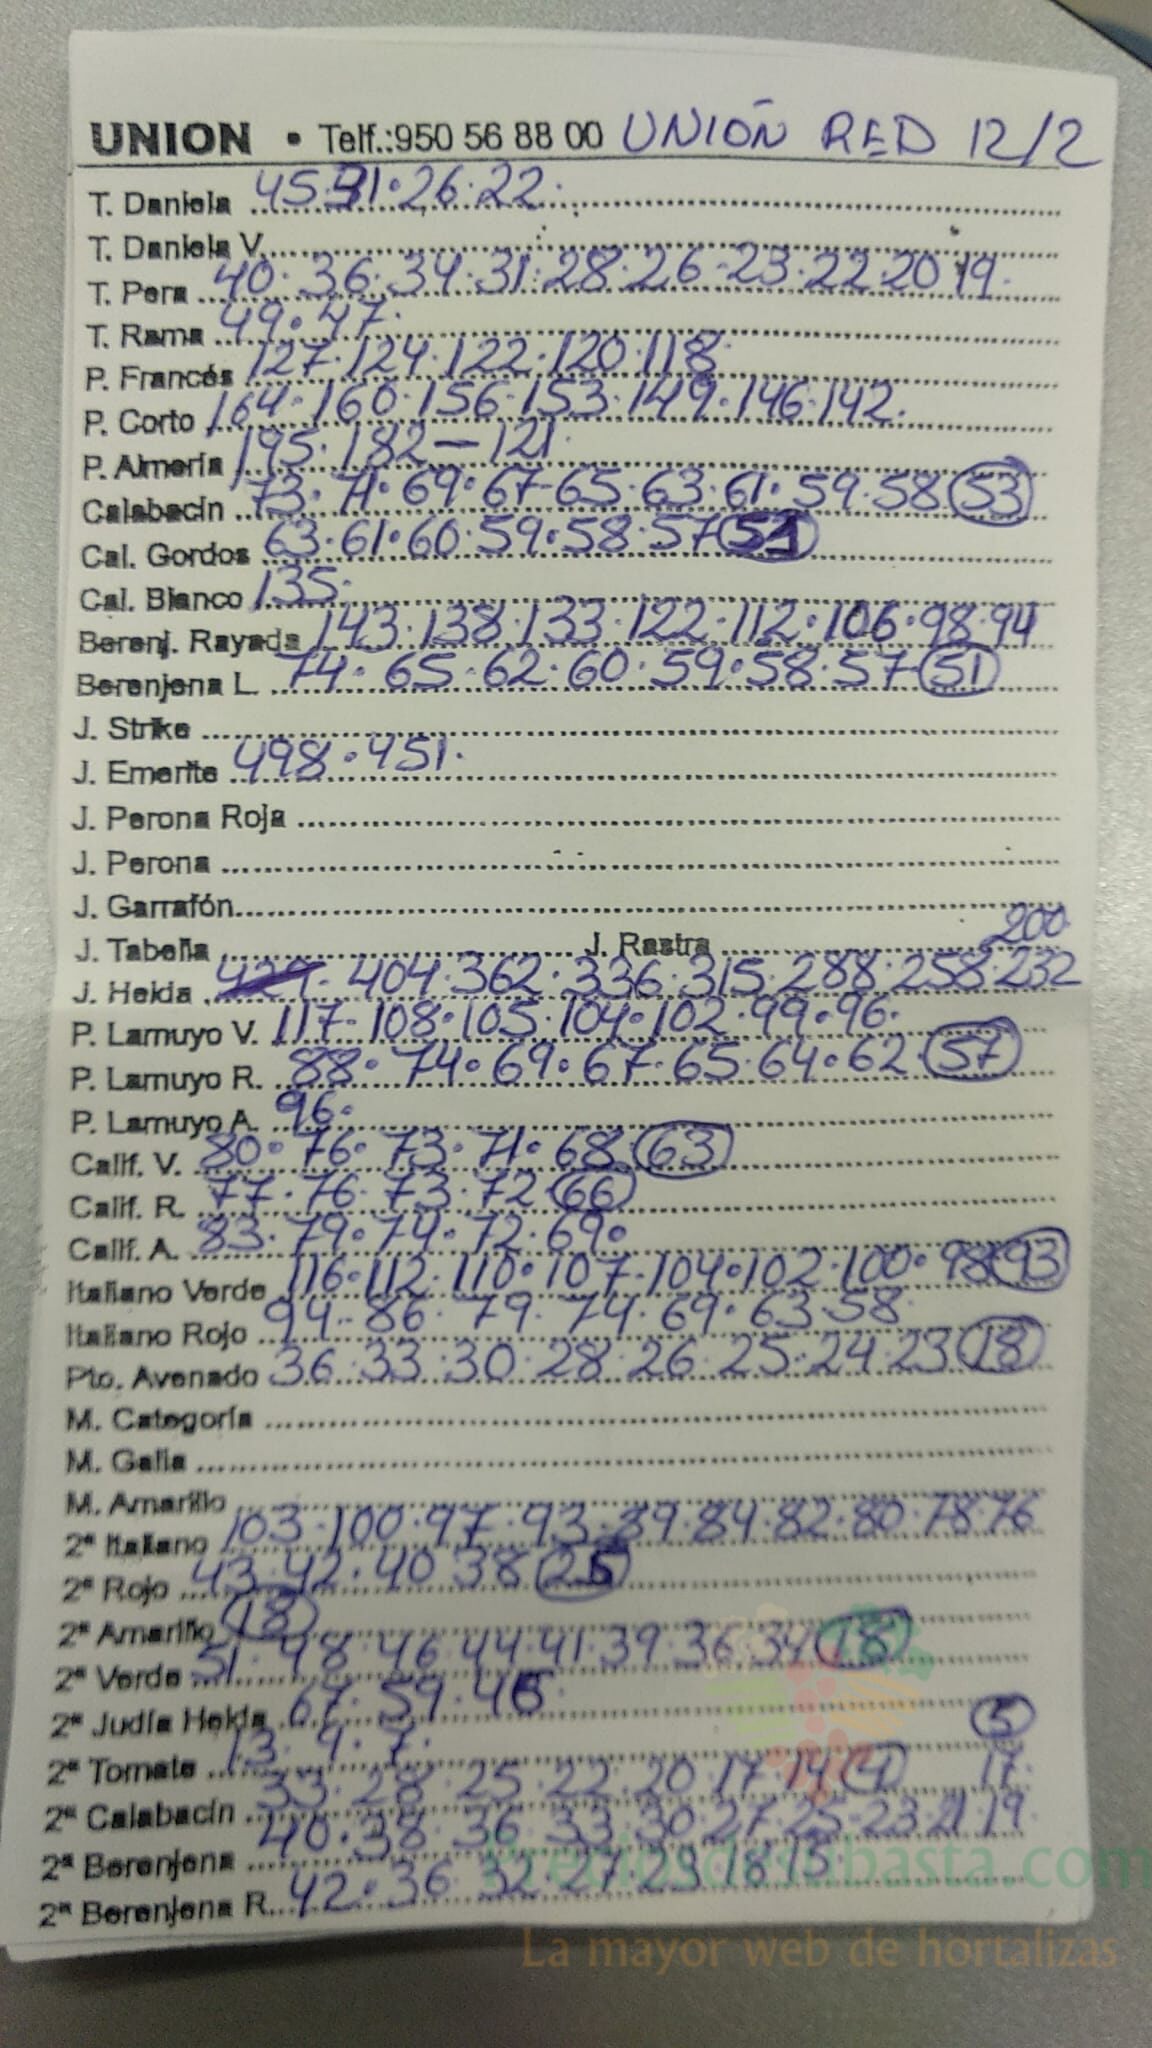 UNION • Telf.:950 56 88 00 UNIÓN RED 12/2
T. Daniela 45·31·26·22·
T. Daniela V.
T. Pera 40·36·34·31·28·26·23·22·20·19·
T. Rama 49·47·
P. Francés 127·124·122·120·118·
P. Corto 164·160·156·153·149·146·142·
P. Almería 195·182—121·
Calabacín 73·71·69·67·65·63·61·59·58 53
Cal. Gordos 63·61·60·59·58·57
Cal. Blanco 135·
Berenj. Rayada 143·138·133·122·112·106·98·94
Berenjena L. 74·65·62·60·59·58·57 51
J. Strike
J. Emerite 498·451·
J. Perona Roja
J. Perona
J. Garrafón
J. Tabella J. Rastra 200
J. Helda 404·362·336·315·288·258·232
P. Lamuyo V. 117·108·105·104·102·99·96·
P. Lamuyo R. 88·74·69·67·65·64·62 57
P. Lamuyo A. 96·
Calif. V. 80·76·73·71·68 63
Calif. R. 77·76·73·72 66
Calif. A. 83·79·74·72·69·
Italiano Verde 116·112·110·107·104·102·100·98 93
Italiano Rojo 94·86·79·74·69·63·58·
Pto. Avenado 36·33·30·28·26·25·24·23 18
M. Categoría
M. Galia
M. Amarillo
2ª Italiano 103·100·97·93·89·84·82·80·78·76
2ª Rojo 43·42·40·38
2ª Amarillo 18
2ª Verde 51·48·46·44·41·39·36·34 18
2ª Judía Helda 67·59·
2ª Tomate 13·9·7· 5
2ª Calabacín 33·28·25·22·20·17·14 17·
2ª Berenjena 40·38·36·33·30·27·25·23·21·19
2ª Berenjena R. 42·36·32·27·23·18·15
Preciosdesubasta.com
La mayor web de hortalizas